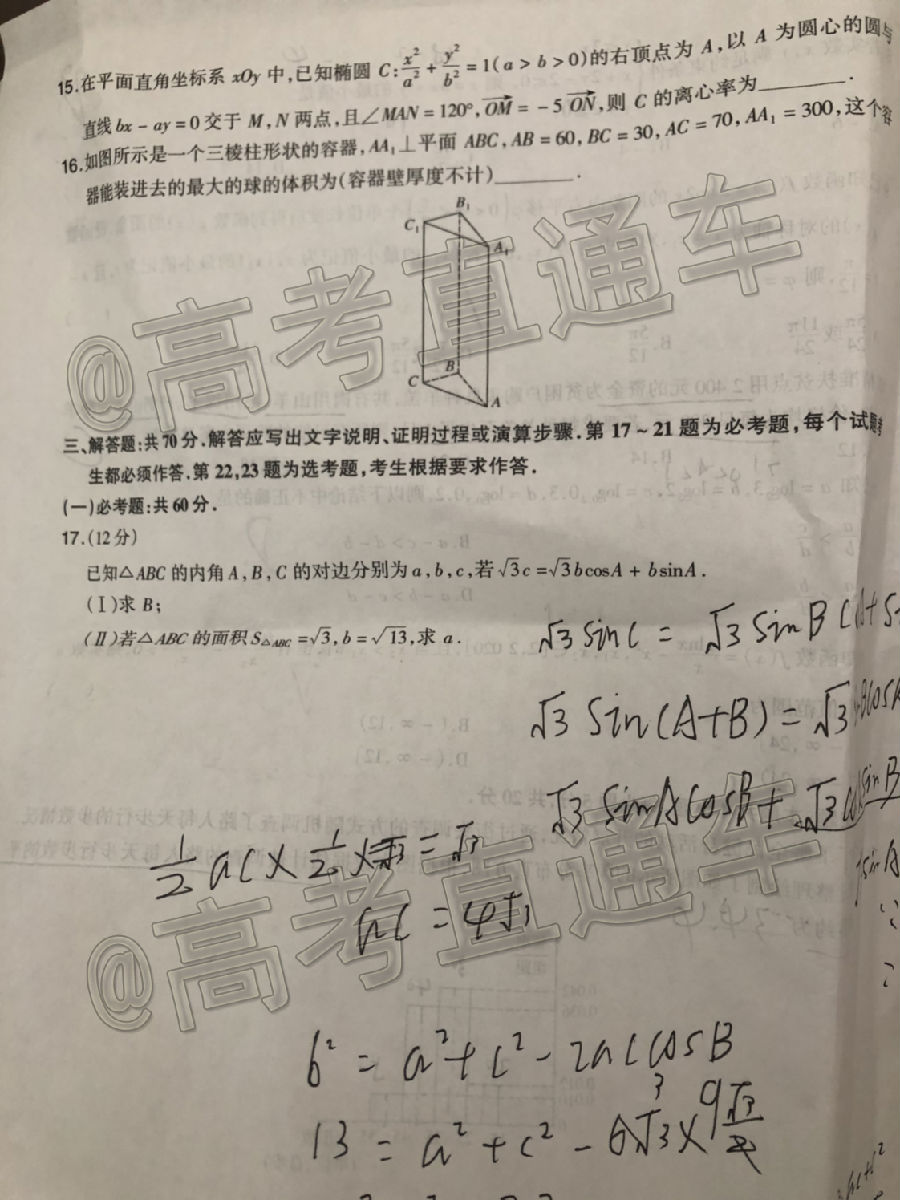 15.在平面直角坐标系 xOy 中,已知椭圆 C:x²/a²+y²/b²=1(a>b>0)的右顶点为 A,以 A 为圆心的圆与
直线 bx-ay=0 交于 M,N 两点,且∠MAN=120°,OM=-5ON,则 C 的离心率为________.
16.如图所示是一个三棱柱形状的容器,AA₁⊥平面 ABC,AB=60,BC=30,AC=70,AA₁=300,这个容
器能装进去的最大的球的体积为(容器壁厚度不计)________.
B₁
C₁
A₁
@高考直通车
B
C
A
三、解答题:共 70 分.解答应写出文字说明、证明过程或演算步骤.第 17~21 题为必考题,每个试题考
生都必须作答.第 22,23 题为选考题,考生根据要求作答.
(一)必考题:共 60 分.
17.(12分)
已知△ABC 的内角 A,B,C 的对边分别为 a,b,c,若√3c=√3bcosA+bsinA.
(Ⅰ)求 B;
(Ⅱ)若△ABC 的面积 S△ABC=√3,b=√13,求 a.
√3 sinC = √3 sinB
√3 sin(A+B) = √3
√3 sinAcosB+
1/2 ac× 1/2 × √3 = √3
ac = 4√3
@高考直通车
b² = a²+c²-2accosB
13 = a²+c²-